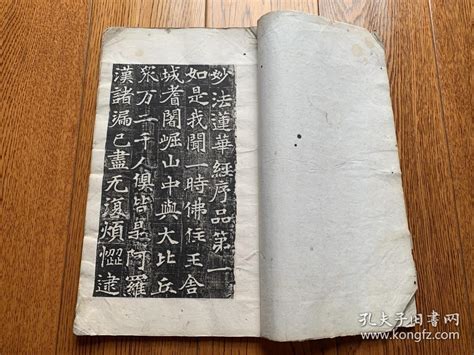 妙法蓮華經序品第一
如是我聞一時佛住王舍
城耆闍崛山中與大比丘
眾万二千人俱皆是阿羅
漢諸漏已盡无復煩惱逮
孔夫子旧书网
www.kongfz.com